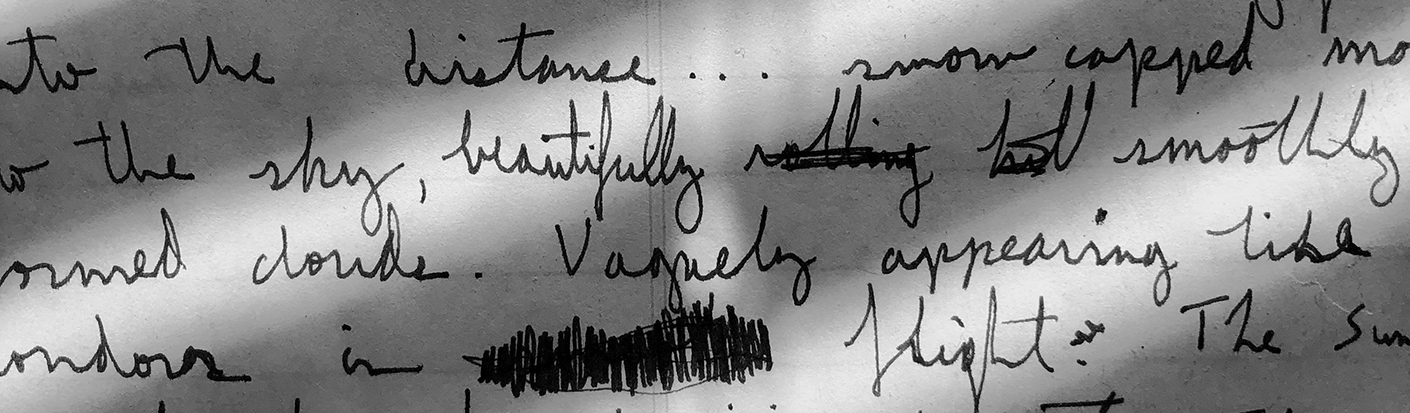 into the distance.... snow capped mo
the sky, beautifully rolling smoothly
ormed clouds. Vaguely appearing like
ondors in flight. The Sun